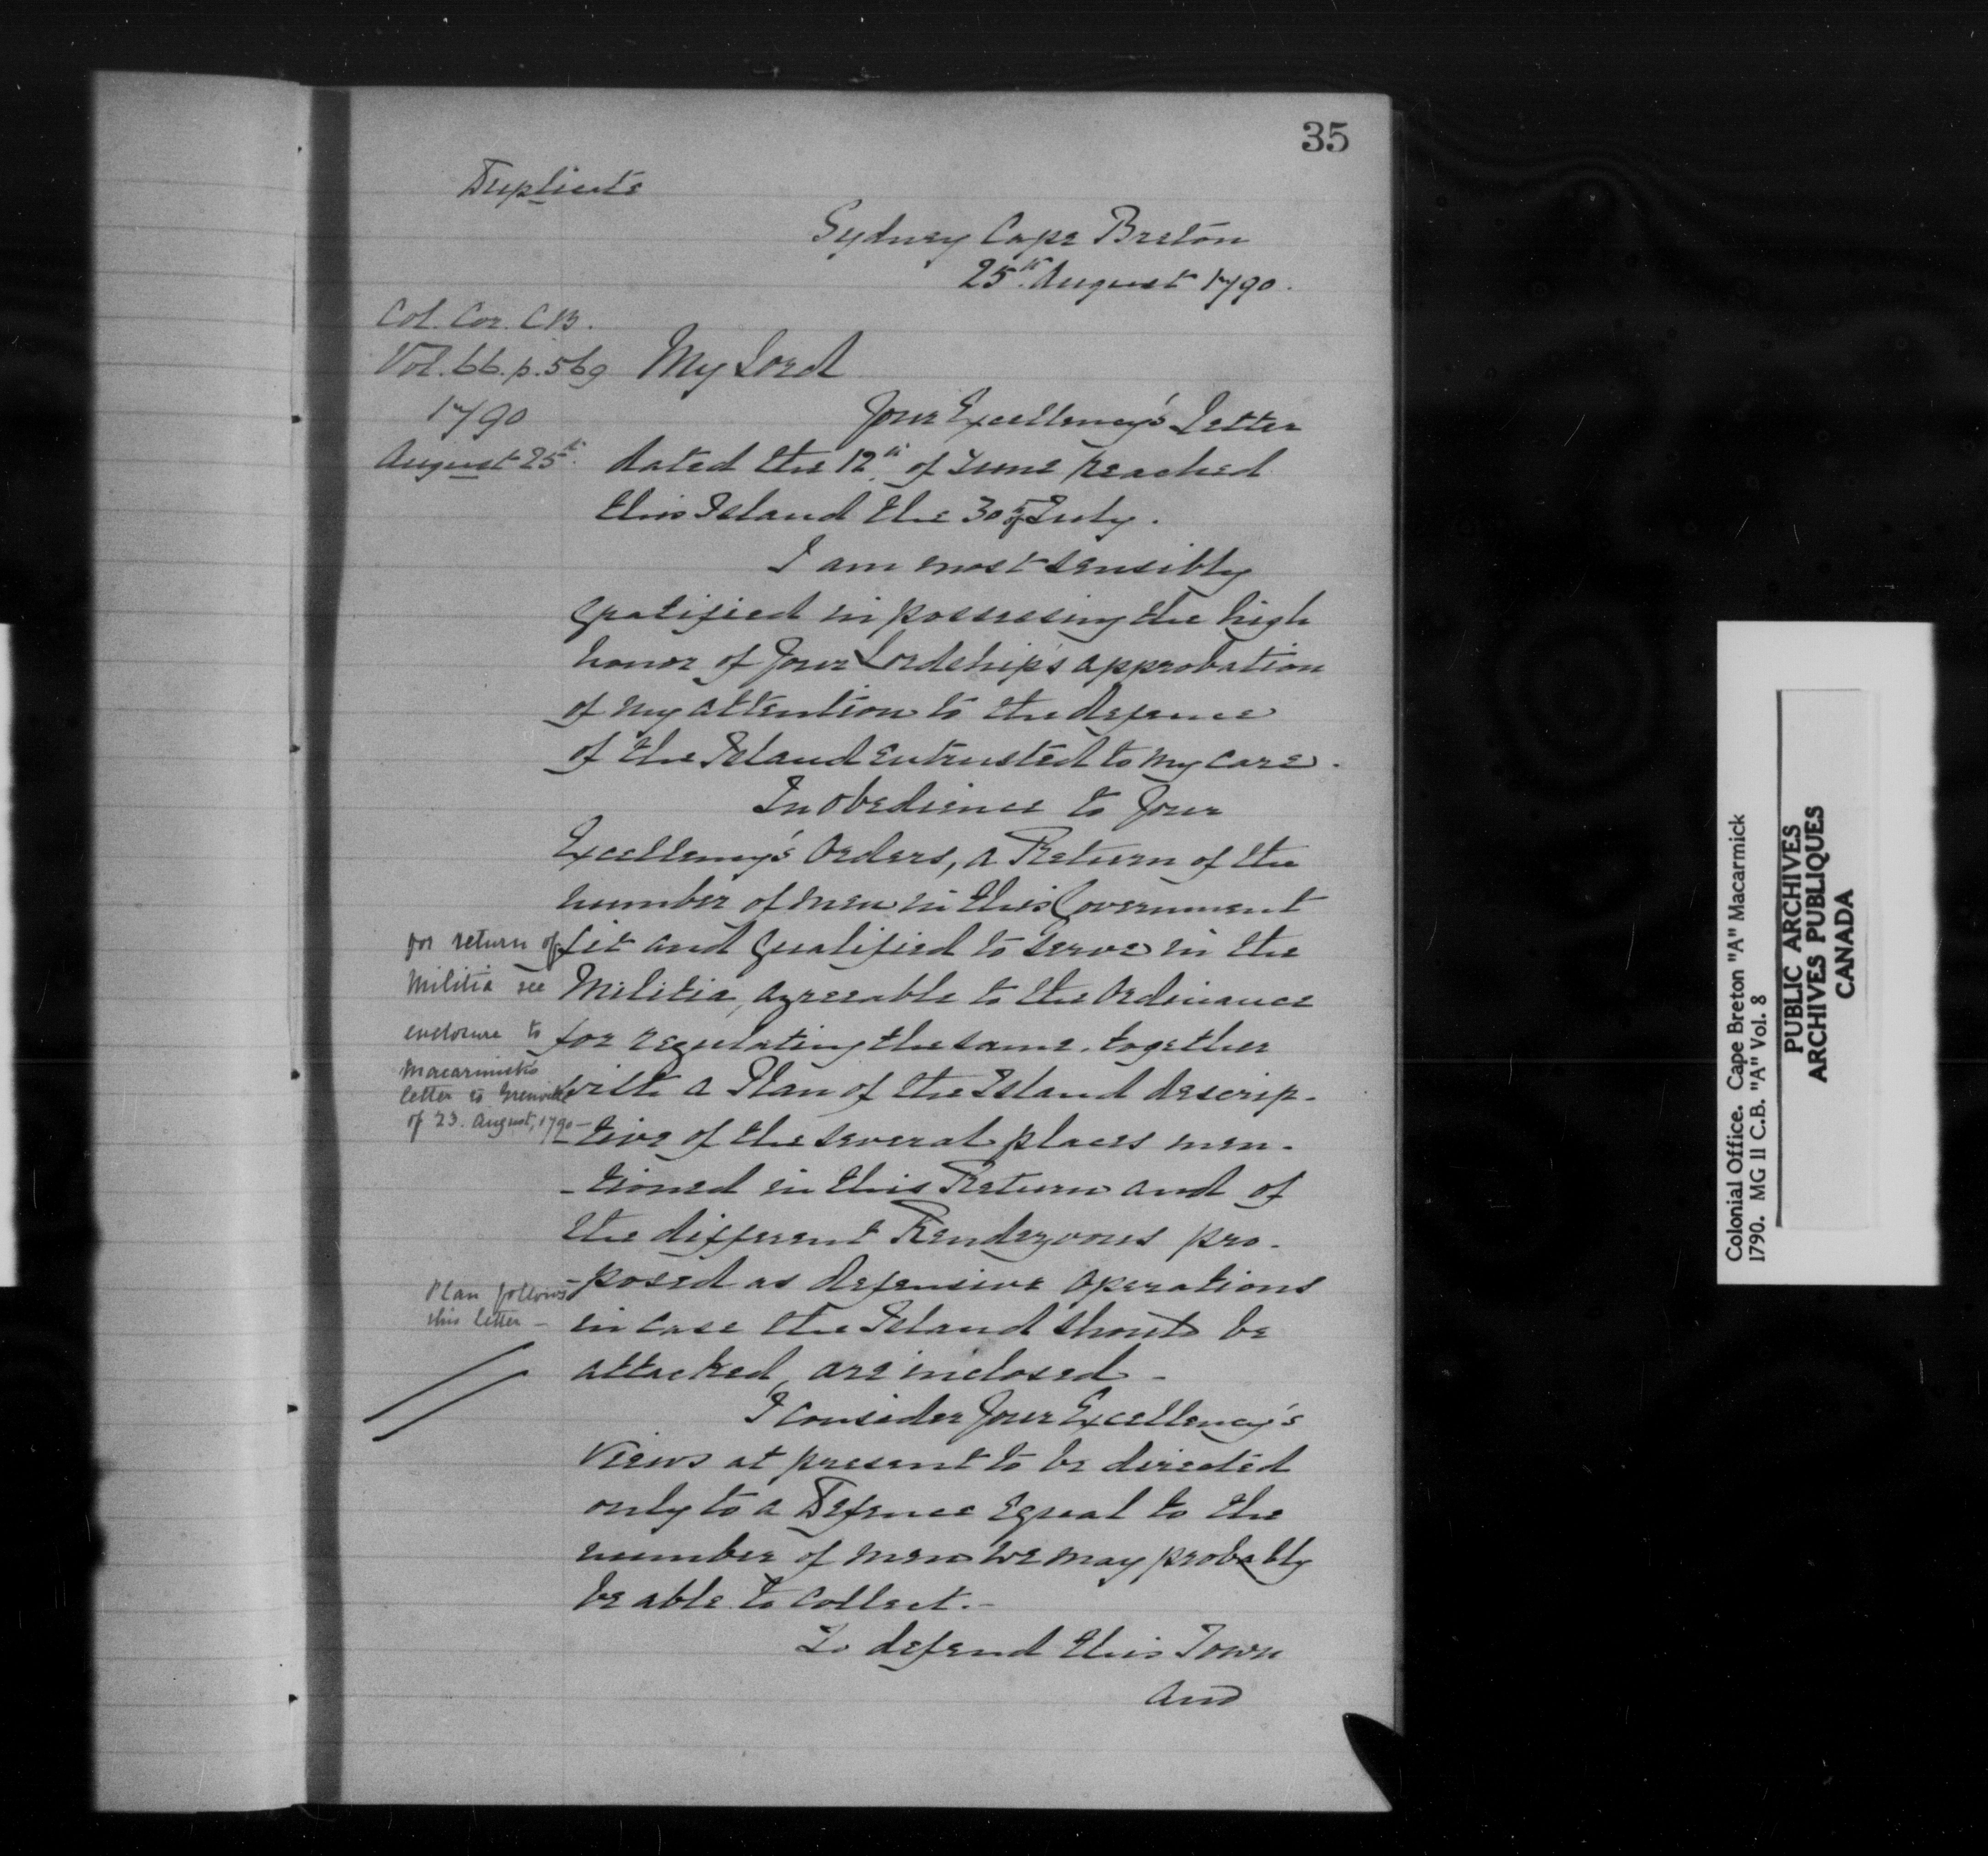 35
Duplicate
Sydney Cape Breton
25th August 1790.
Col. Cor. C.B.
Vol. 66. p. 569
1790
August 25th.
My Lord
Your Excellency's Letter
dated the 12th of June reached
this Island the 30 of July.
I am most sensibly
gratified in possessing the high
honor of Your Lordship's approbation
of my attention to the defence
of the Island entrusted to my care.
In obedience to Your
Excellency's Orders, a Return of the
number of men in this Government
fit and qualified to serve in the
Militia, agreeable to the Ordinance
for regulating the same, together
with a Plan of the Island descrip-
-tive of the several places men-
-tioned in this Return and of
the different Rendezvous pro-
-posed as defensive operations
in case the Island should be
attacked, are inclosed -
for return of
Militia see
enclosure to
Macarmick's
letter to Grenville
of 23. August, 1790 -
Plan follows
this letter -
I consider Your Excellency's
Views at present to be directed
only to a Defence equal to the
number of men we may probably
be able to collect. -
To defend this Town
and
Colonial Office. Cape Breton "A" Macarmick
1790. MG 11 C.B. "A" Vol. 8
PUBLIC ARCHIVES
ARCHIVES PUBLIQUES
CANADA